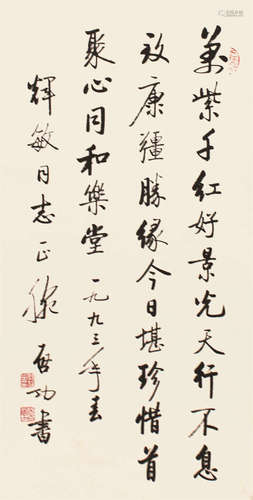 萬紫千紅好景光天行不息
效康彊勝緣今日堪珍惜首
聚心同和樂堂一九九三年春
輝敏同志正腕啟功書